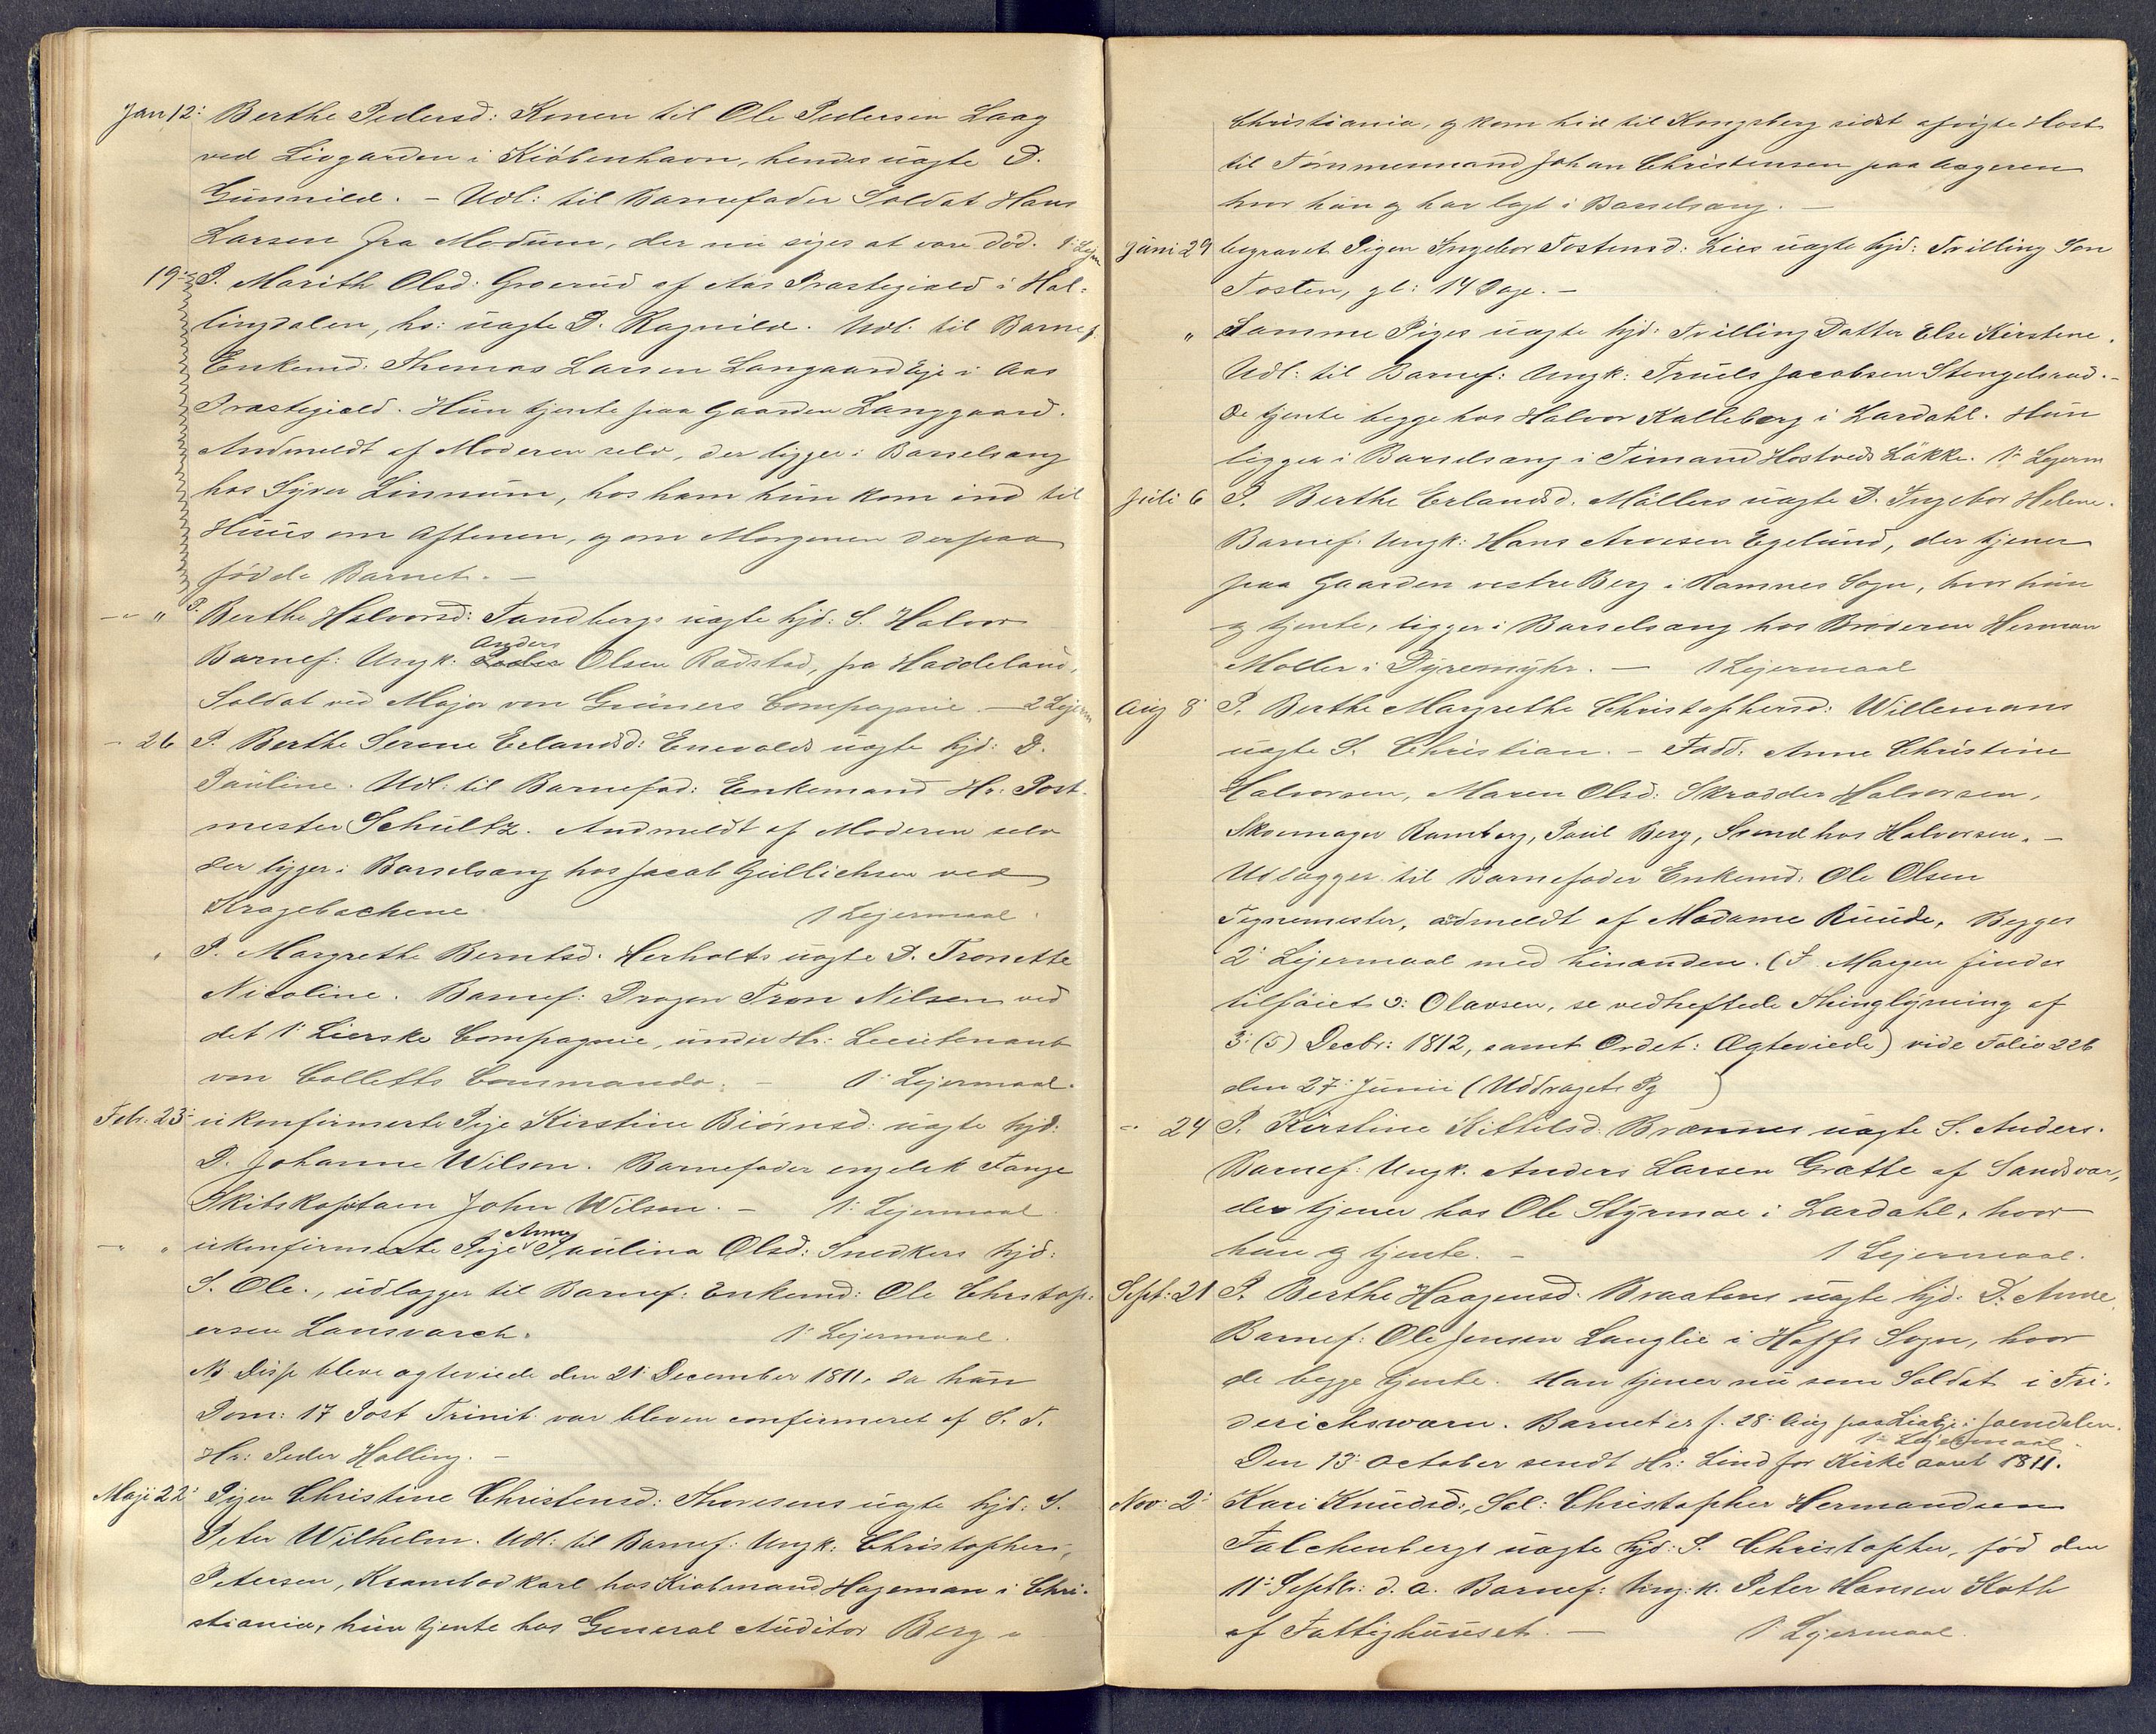 Jan 12: Berthe Pedersd: Konen til Ole Pedersen Laag
ved Livgarden i Kiöbenhavn, hendes uægte D.
Gunnild. – Udl: til Barnefader Soldat Hans
Larsen fra Modum, der nu siges at være död. 1: Lejm
19: P. Marith Olsd: Groerud af Aas Præstegiæld i Hal-
lingdalen, hs: uægte D. Ragnild. Udl. til Barnef.
Enkemd: Thomas Larsen Langaard Eje i Aas
Præstegiæld. Hun tjente paa Gaarden Langgaard.
Andmeldt af Moderen selv, der ligger i Barselsæng
hos Syver Linnum, hos ham hun kom ind til
Huus om Aftenen, og om Morgenen derpaa
födde Barnet. –
– " P. Berthe Halvorsd: Sandbergs uægte hjd: S. Halvor
Barnef: Ungk: Anders Olsen Radstad, fra Haddeland,
Soldat ved Major von Grüners Compagnie. – 2 Lejerm
– 26 P. Berthe Serene Erlandsd: Enevalds uægte hjd: D.
Pauline. Udl: til Barnefad: Enkemand Hr. Post-
mester Schultz. Andmeldt af Moderen selv
der ligger i Barselsæng hos Jacob Gullichsen ved
Kragebachene 1 Lejermaal.
" P. Margrethe Berntsd: Herholts uægte D. Tronette
Nicoline. Barnef: Dragon Tron Nilsen ved
det 1: Lierske Compagnie, under Hr: Lieutenant
von Colletts Commando. – 1: Lejermaal.
Febr. 23: ukonfirmerte Pige Kirstine Biörnsd: uægte hjd:
D. Johanne Wilson. Barnefader engelsk Fange
Skibskaptain John Wilson. – 1: Lejermaal.
– " ukonfirmerte Pige Anne Paulina Olsd: Snedkers hjd:
S. Ole., udlægger til Barnef: Enkemd: Ole Christoph-
ersen Lansværch. 1: Lejermaal.
NB Disse bleve ægteviede den 21: December 1811. da hun
Dom: 17 Post Trinit: var bleven confirmeret af S. T.
Hr: Peder Holling. –
Maji 22: Pigen Christine Christensd: Thoresens uægte hjd: S.
Peter Wilhelm. Udl: til Barnef: Ungk: Christopher
Petersen, Krambodkarl hos Kiöbmand Hageman i Chri-
stiania, hun tjente hos General Auditör Berg i
Christiania, og kom hid til Kongsberg sidst afvigte Höst
til Tömmermand Johan Christensen paa Aageren
hvor hun og har lagt i Barselsæng. –
Juni 29 begravet Pigen Ingebor Tostensd: Lies uægte hjd: Tvilling Sön
Tosten, gl: 14 Dage. –
" Samme Piges uægte hjd: Tvilling Datter Else Kirstine.
Udl: til Barnef: Ungk: Truels Jacobsen Stengelsrud. –
de tjente begge hos Halvor Kalleberg i Lardahl. Hun
ligger i Barselsæng i Timand Hostveds Lökke. 1: Lejerm
Juli 6 P. Berthe Erlandsd. Möllers uægte D. Ingebor Helene.
Barnef: Ungk: Hans Arvesen Egelund, der tjener
paa Gaarden vestre Berg i Ramnes Sogn, hvor hun
og tjente, ligger i Barselsæng hos Broderen Herman
Möller i Dyremyhr. – 1 Lejermaal
Aug 8 P. Berthe Margrethe Christophersd: Willemans
uægte S. Christian. – Fadd: Anne Christine
Halvorsen, Maren Olsd: Skrædder Halvorsen,
Skoemager Ramberg, Poul Berg, Svend hos Halvorsen. –
Udlægges til Barnefader Enkemd: Ole Olsen
Tegnemester, admeldt af Madame Ruude, Begges
2: Lejermaal med hinanden. (I Margen findes
tilföiet: Olavsen, se vedheftede Thinglysning af
3: (5) Decbr: 1812, samt Ordet: Ægteviede) vide Folio 226
den 27: Junii (Uddragets Pg )
– 24 P. Kirstine Kittilsd: Brænnes uægte S. Anders.
Barnef: Ungk. Anders Larsen Grætte af Sandsvær,
der tjener hos Ole Styrmoe i Lardahl, hvor
hun og tjente. – 1 Lejermaal.
Sept: 21 P. Berthe Haagensd: Braatens uægte hjd: D. Anne.
Barnef: Ole Jensen Langlie i Hoffs Sogn, hvor
de begge tjente. Han tjener nu som Soldat i Fri-
derichsværn. Barnet er f. 28: Aug paa Lieeje i Joendalen.
1: Lejermaal.
Den 13: October sendt Hr: Lind for Kirke aaret 1811.
Nov: 2: Kari Knudsd:, Sal: Christopher Hermandsen
Falchenbergs uægte hjd: S. Christopher, föd den
11: Septbr: d. a. Barnef: Ung: k. Peter Hansen Kolb
af Fattighuuset. – 1: Lejermaal.